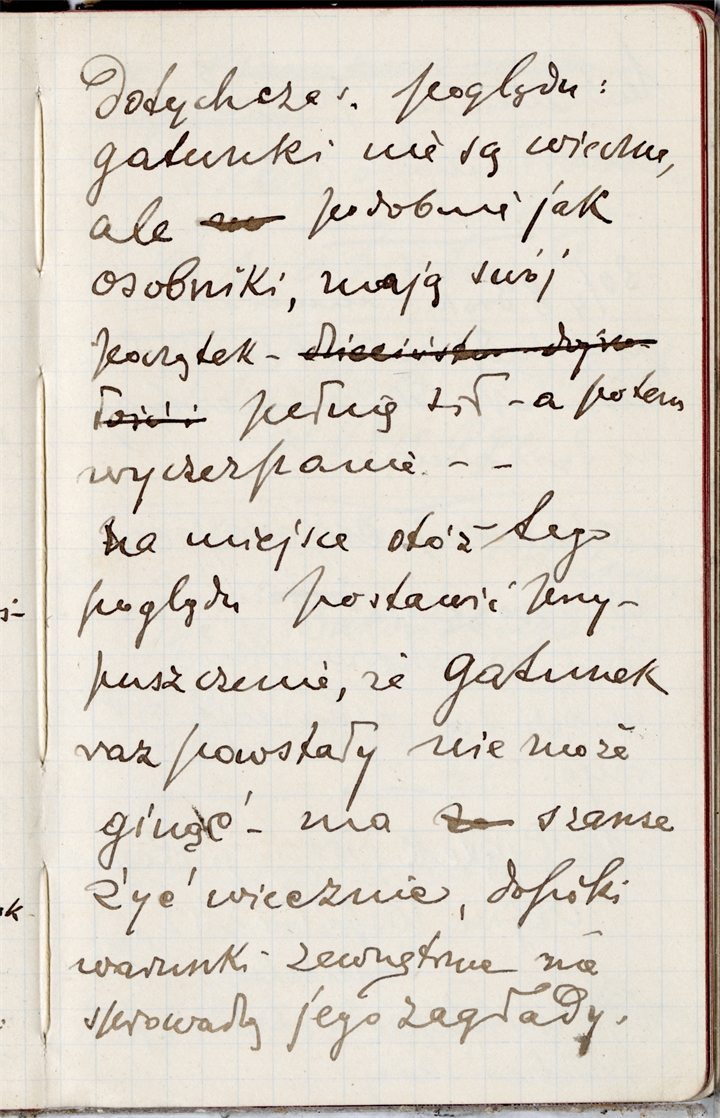 Dotychczas. poglądu:
gatunki nie są wieczne,
ale podobnie jak
osobniki, mają swój
początek - dzieciństwo dojrza-
łość i pełnię sił - a potem
wyczerpanie - -
Na miejsce otóż tego
poglądu postawić przy-
puszczenie, że gatunek
raz powstały nie może
ginąć - ma szanse
żyć wiecznie, dopóki
warunki zewnętrzne nie
sprowadzą jego zagłady.